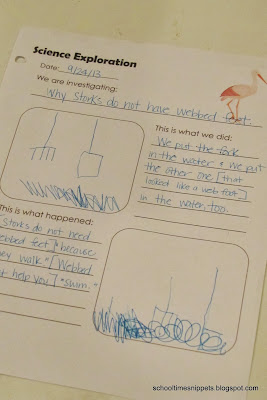 Science Exploration
Date: 9/24/13
We are investigating:
Why Storks do not have webbed feet
This is what we did:
We put the fork
in the water & we put
the other one [that
looked like a web foot]
in the water too.
This is what happened:
Storks do not need
webbed feet "because
they walk." [Webbed
help you] "swim."
schooltimesnippets.blogspot.com